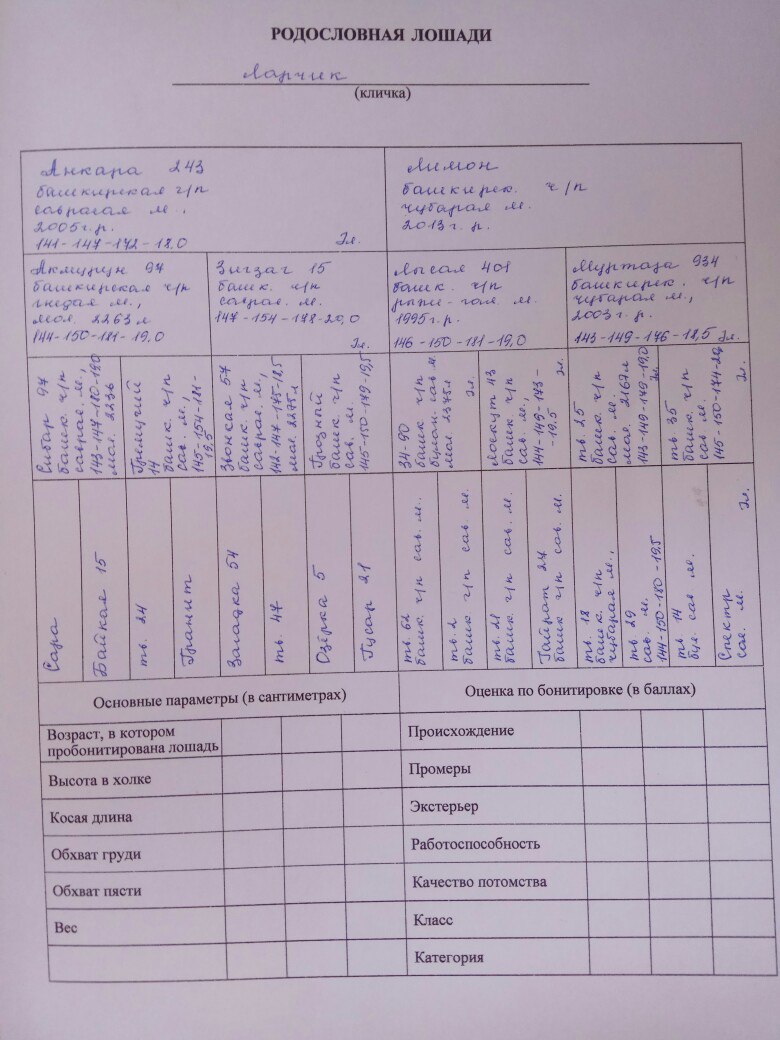 РОДОСЛОВНАЯ ЛОШАДИ
Ларчик
(кличка)
Анкара 243
башкирская ч/п
саврасая м.,
2005 г.р.
141-147-172-18,0 Эл.
Лимон
башкирск. ч/п
чубарая м.
2013 г.р.
Акмурун 97
башкирская ч/п
гнедая м.,
мол. 2263 л
144-150-181-19,0
Зигзаг 15
башк. ч/п
саврас. м.
147-154-178-20,0
Эл.
Лысая 401
башк. ч/п
рыже-гол. м.
1995 г.р.
146-150-181-19,0
Муртаза 934
башкирск. ч/п
чубарая м.,
2003 г.р.
143-149-176-18,5 Эл.
Сибар 97
башк. ч/п
саврас. м.,
143-147-180-190
мол. 2236
Гремучий
14
башк ч/п
сав. м.,
145-154-181-
19,5
Звонкая 57
башк. ч/п
саврас. м.,
142-147-175-18,5
мол. 2275 л
Грозный
башк. ч/п
сав. м.
145-150-179-19,5
Эл.
34-90
башк ч/п
булан. сав м
мол 2375 л
Лоскут 43
башк ч/п
сав м.,
144-149-173-
-19,5 Эл.
тв 25
башк. ч/п
сав. м.
мол. 2167 л
143-149-179-19,0
Эл.
тв 35
башк ч/п
сав м.
145-150-174-20
Эл.
Сара
Байкал 15
тв. 24
Гранит
Загадка 54
тв. 47
Озёрка 5
Гусар 21
тв. 62
башк. ч/п сав. м.
тв. 2
башк ч/п сав м
тв. 21
башк ч/п сав. м.
Гайрат 24
башк ч/п сав. м.
тв. 18
башк. ч/п
чубарая м.,
тв 29
сав. м.
144-150-180-19,5
тв 14
бул сав м.
Спектр
сав. м. Эл.
Основные параметры (в сантиметрах)
Оценка по бонитировке (в баллах)
Возраст, в котором
пробонитирована лошадь
Происхождение
Высота в холке
Промеры
Косая длина
Экстерьер
Обхват груди
Работоспособность
Обхват пясти
Качество потомства
Вес
Класс
Категория